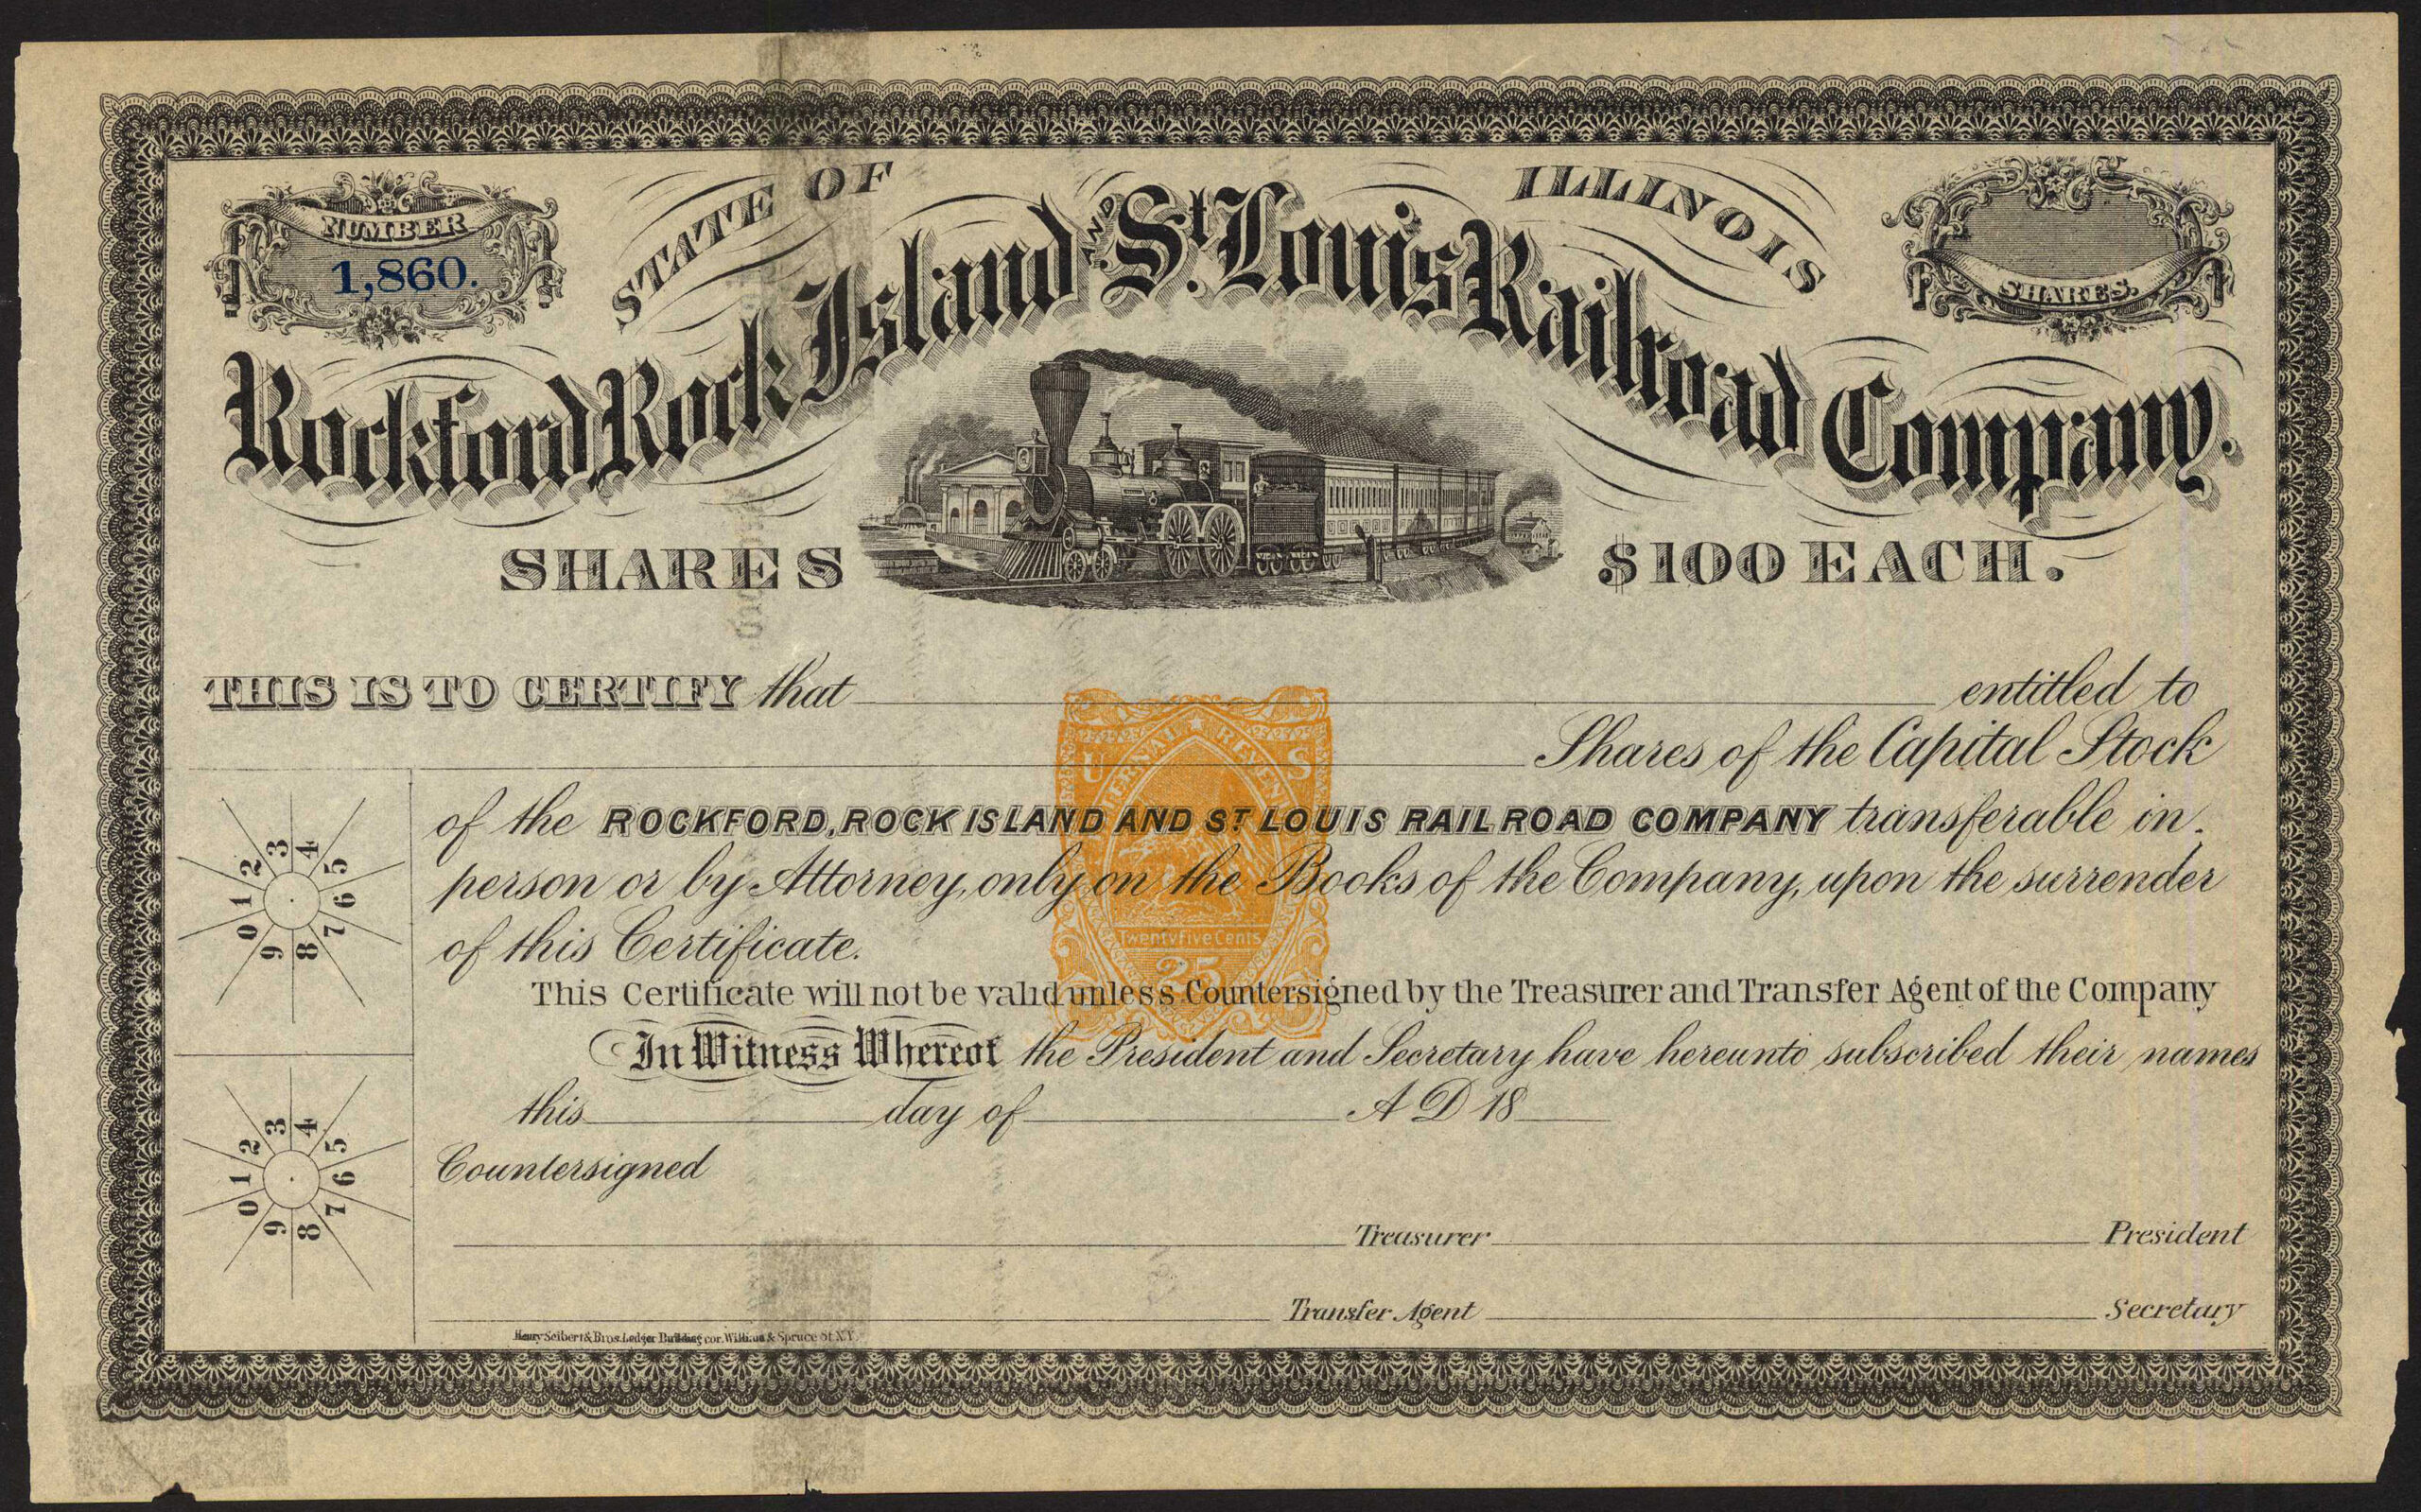 STATE OF ILLINOIS
NUMBER
1,860.
SHARES.
Rockford Rock Island AND St. Louis Railroad Company.
SHARES $100 EACH.
THIS IS TO CERTIFY that entitled to
Shares of the Capital Stock
of the ROCKFORD, ROCK ISLAND AND ST LOUIS RAILROAD COMPANY transferable in
person or by Attorney, only on the Books of the Company, upon the surrender
of this Certificate.
This Certificate will not be valid unless Countersigned by the Treasurer and Transfer Agent of the Company
In Witness Whereof the President and Secretary have hereunto subscribed their names
this day of A D 18
Countersigned
Treasurer President
Transfer Agent Secretary
Henry Seibert & Bros. Ledger Building cor. William & Spruce St N.Y.
U S
INTERNAL REVENUE
Twenty Five Cents
25
0 1 2 3 4 5 6 7 8 9
0 1 2 3 4 5 6 7 8 9